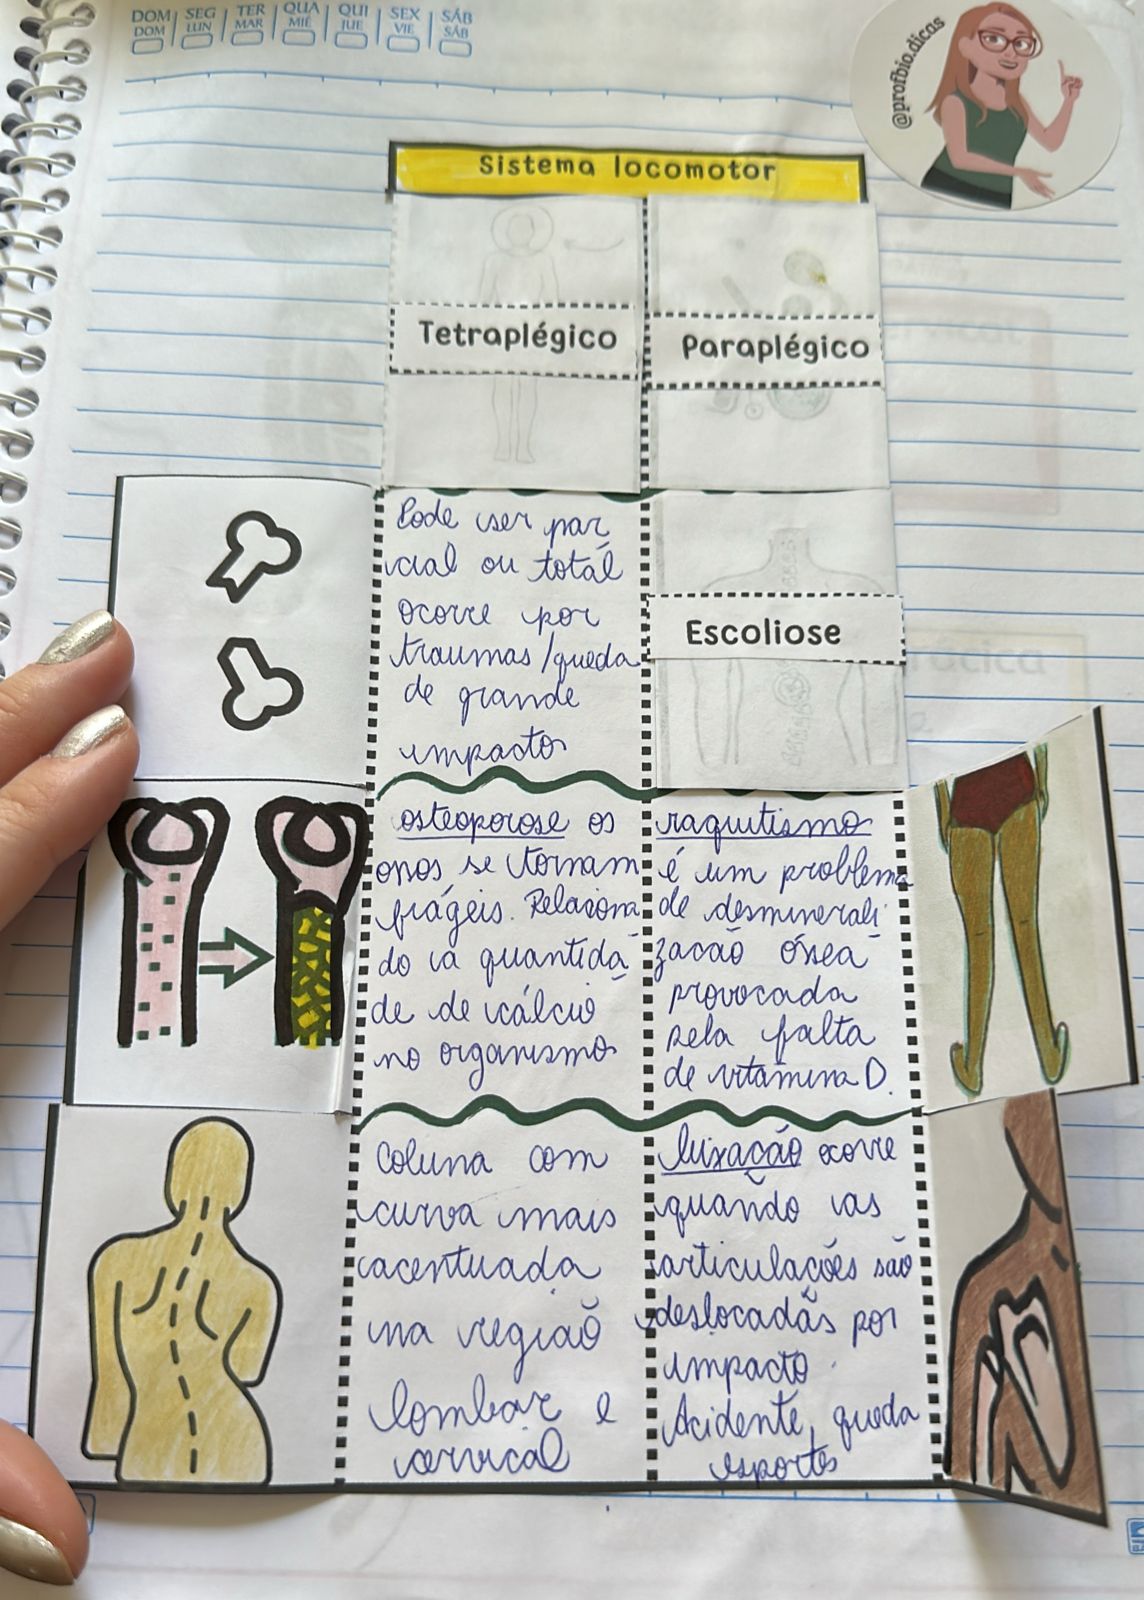 DOM SEG TER QUA QUI SEX SÁB
DOM LUN MAR MIÉ JUE VIE SÁB
@profbio.dicas
Sistema locomotor
Tetraplégico
Paraplégico
Pode ser par
cial ou total
ocorre por
traumas/queda
de grande
impacto
Escoliose
osteoporose os
ossos se tornam
frágeis. Relaciona
do a quantida
de de cálcio
no organismo
raquitismo
é um problema
de desminerali
zacão óssea
provocada
pela falta
de vitamina D.
Coluna com
curva mais
acentuada
na região
lombar e
cervical
luxação ocorre
quando as
articulações são
deslocadas por
impacto.
Acidente, queda
esportes